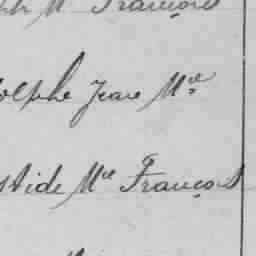 ph M François
olphe Jean Mie
stide Mie François